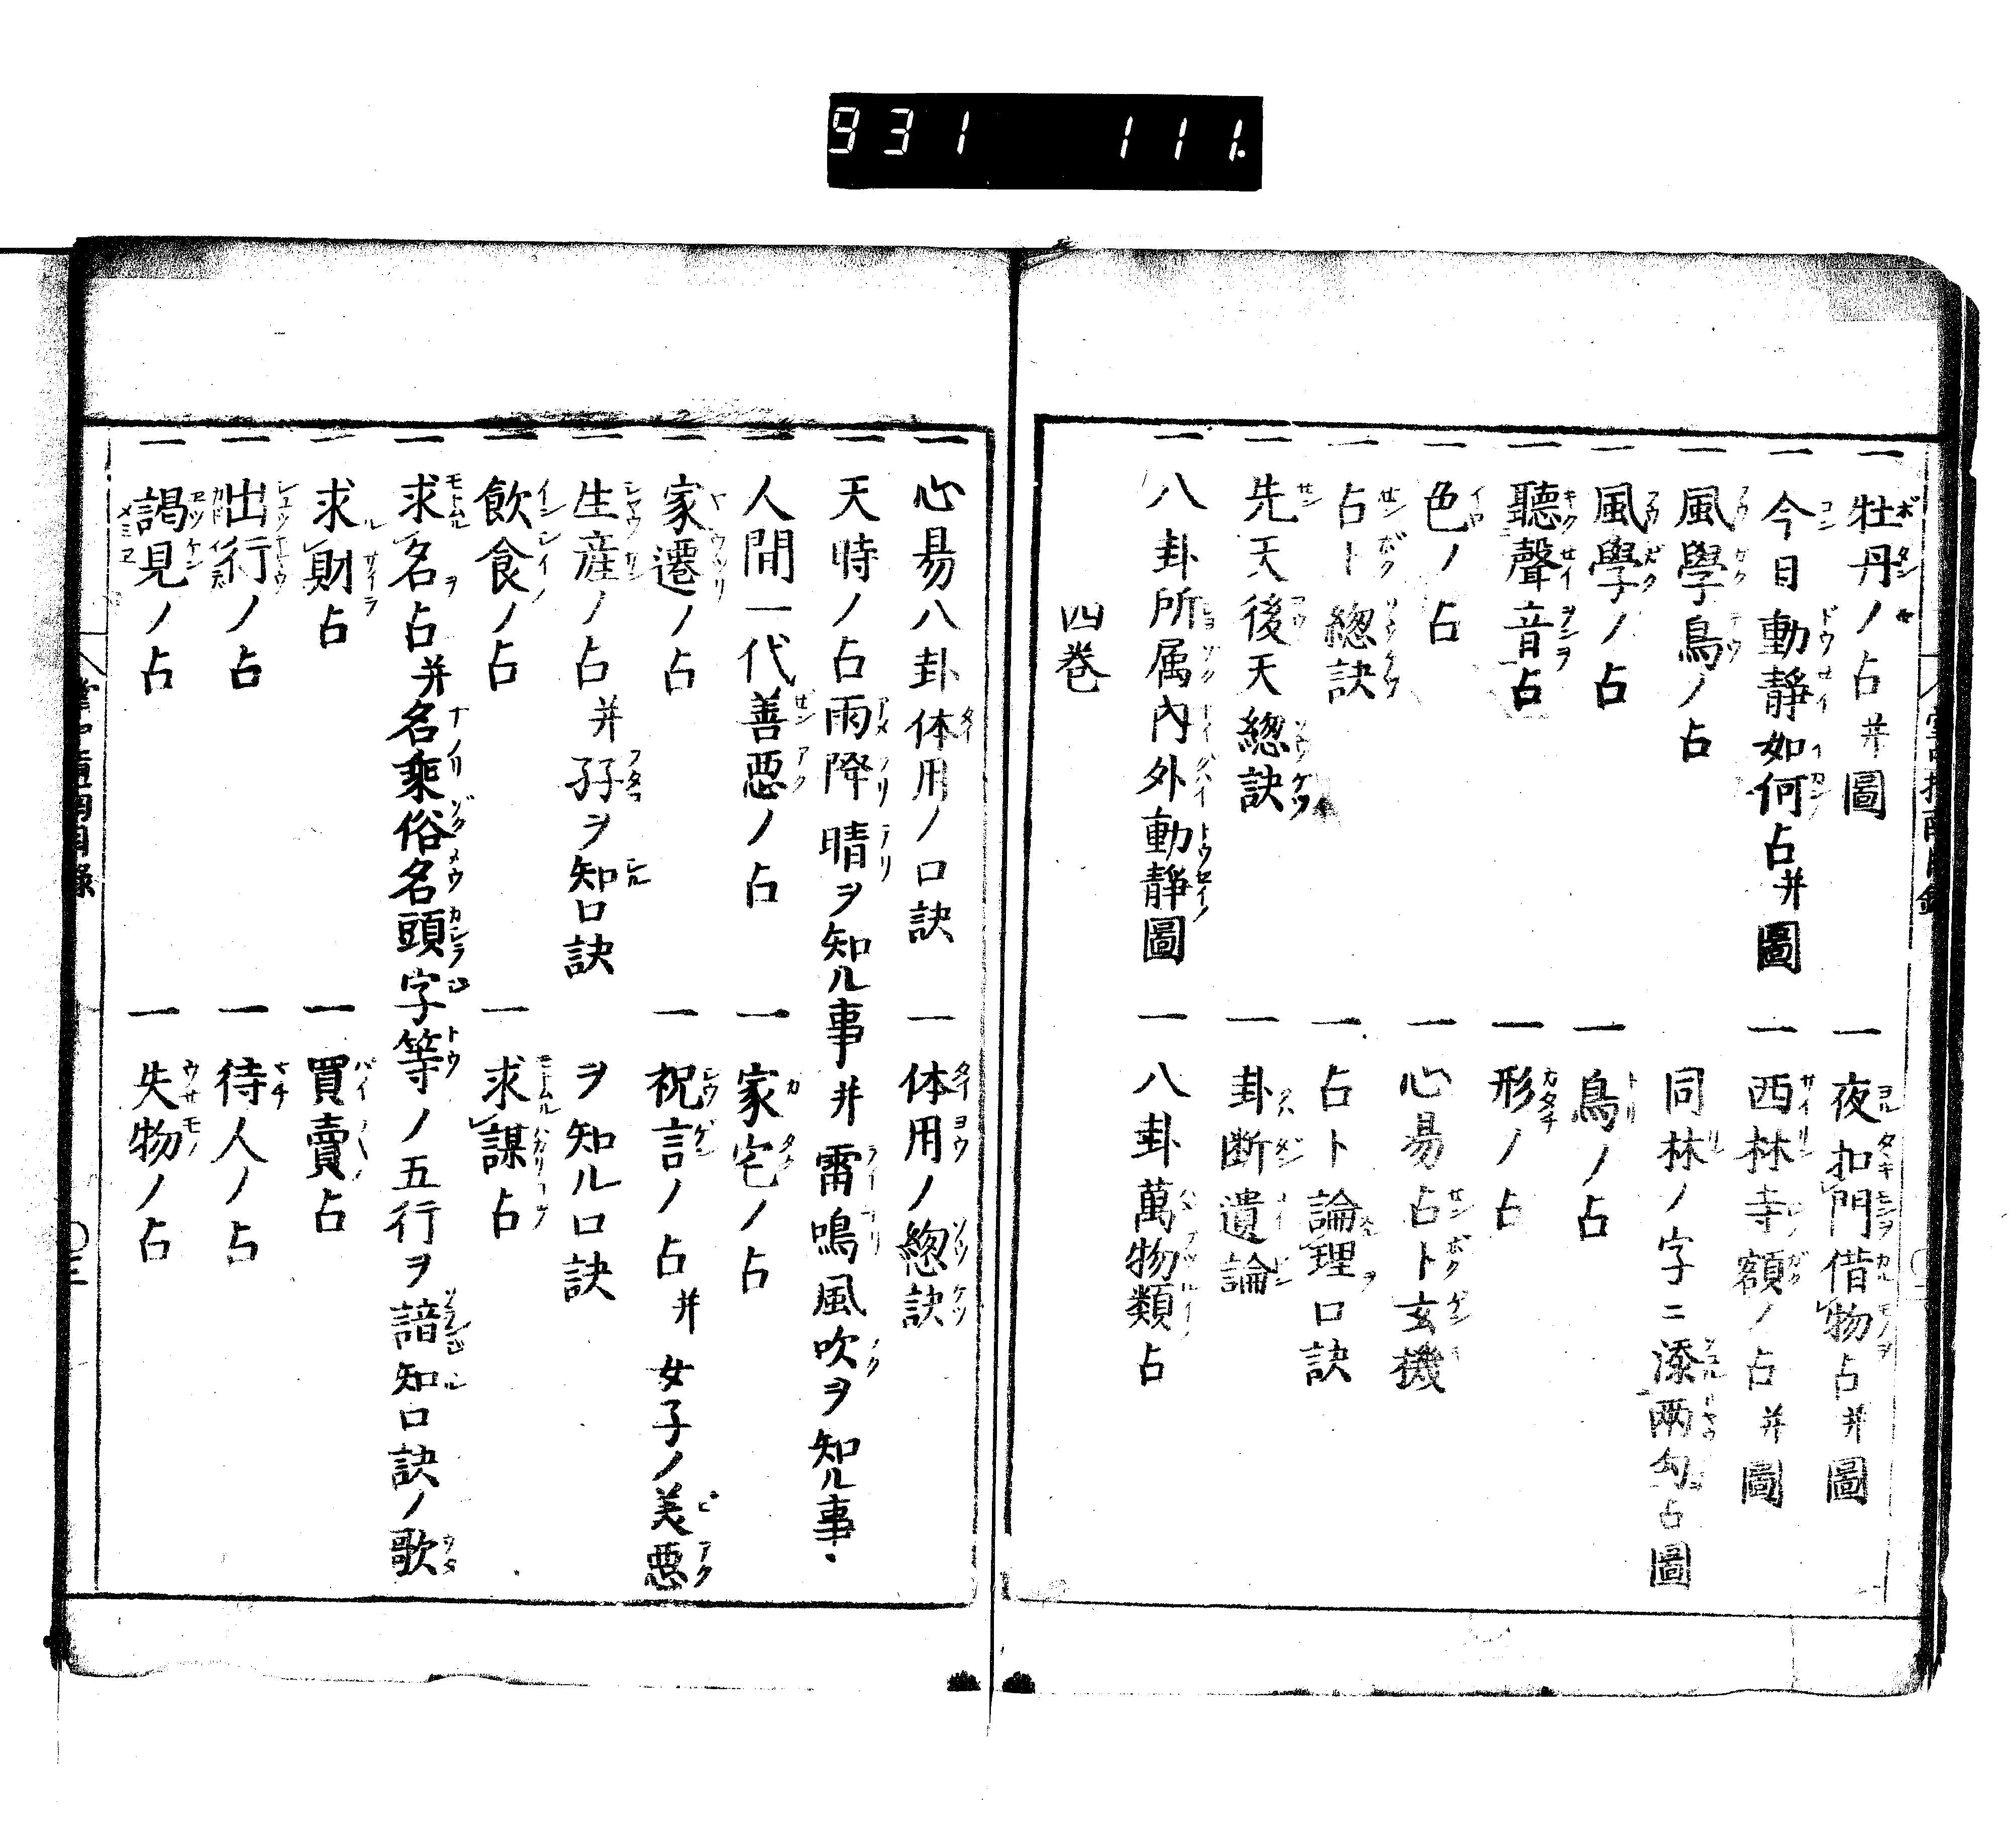 931 111
一 牡丹ノ占并圖 一 夜扣門借物占并圖
一 今日動静如何占并圖 一 西林寺額ノ占并圖
一 風學鳥ノ占 同林ノ字ニ添兩勾占圖
一 風學ノ占 一 鳥ノ占
一 聽聲音占 一 形ノ占
一 色ノ占 一 心易占卜玄機
一 占卜總訣 一 占卜論理口訣
一 先天後天總訣 一 卦断遺論
一 八卦所属内外動静圖 一 八卦萬物類占
四巻
一 心易八卦体用ノ口訣 一 体用ノ總訣
一 天時ノ占雨降晴ヲ知ル事并雷鳴風吹ヲ知ル事
一 人間一代善惡ノ占 一 家宅ノ占
一 家遷ノ占 一 祝言ノ占并女子ノ美惡
一 生産ノ占并孖ヲ知口訣 ヲ知ル口訣
一 飲食ノ占 一 求謀占
一 求名占并名乘俗名頭字等ノ五行ヲ諳知口訣ノ歌
一 求財占 一 買賣占
一 出行ノ占 一 待人ノ占
一 謁見ノ占 一 失物ノ占